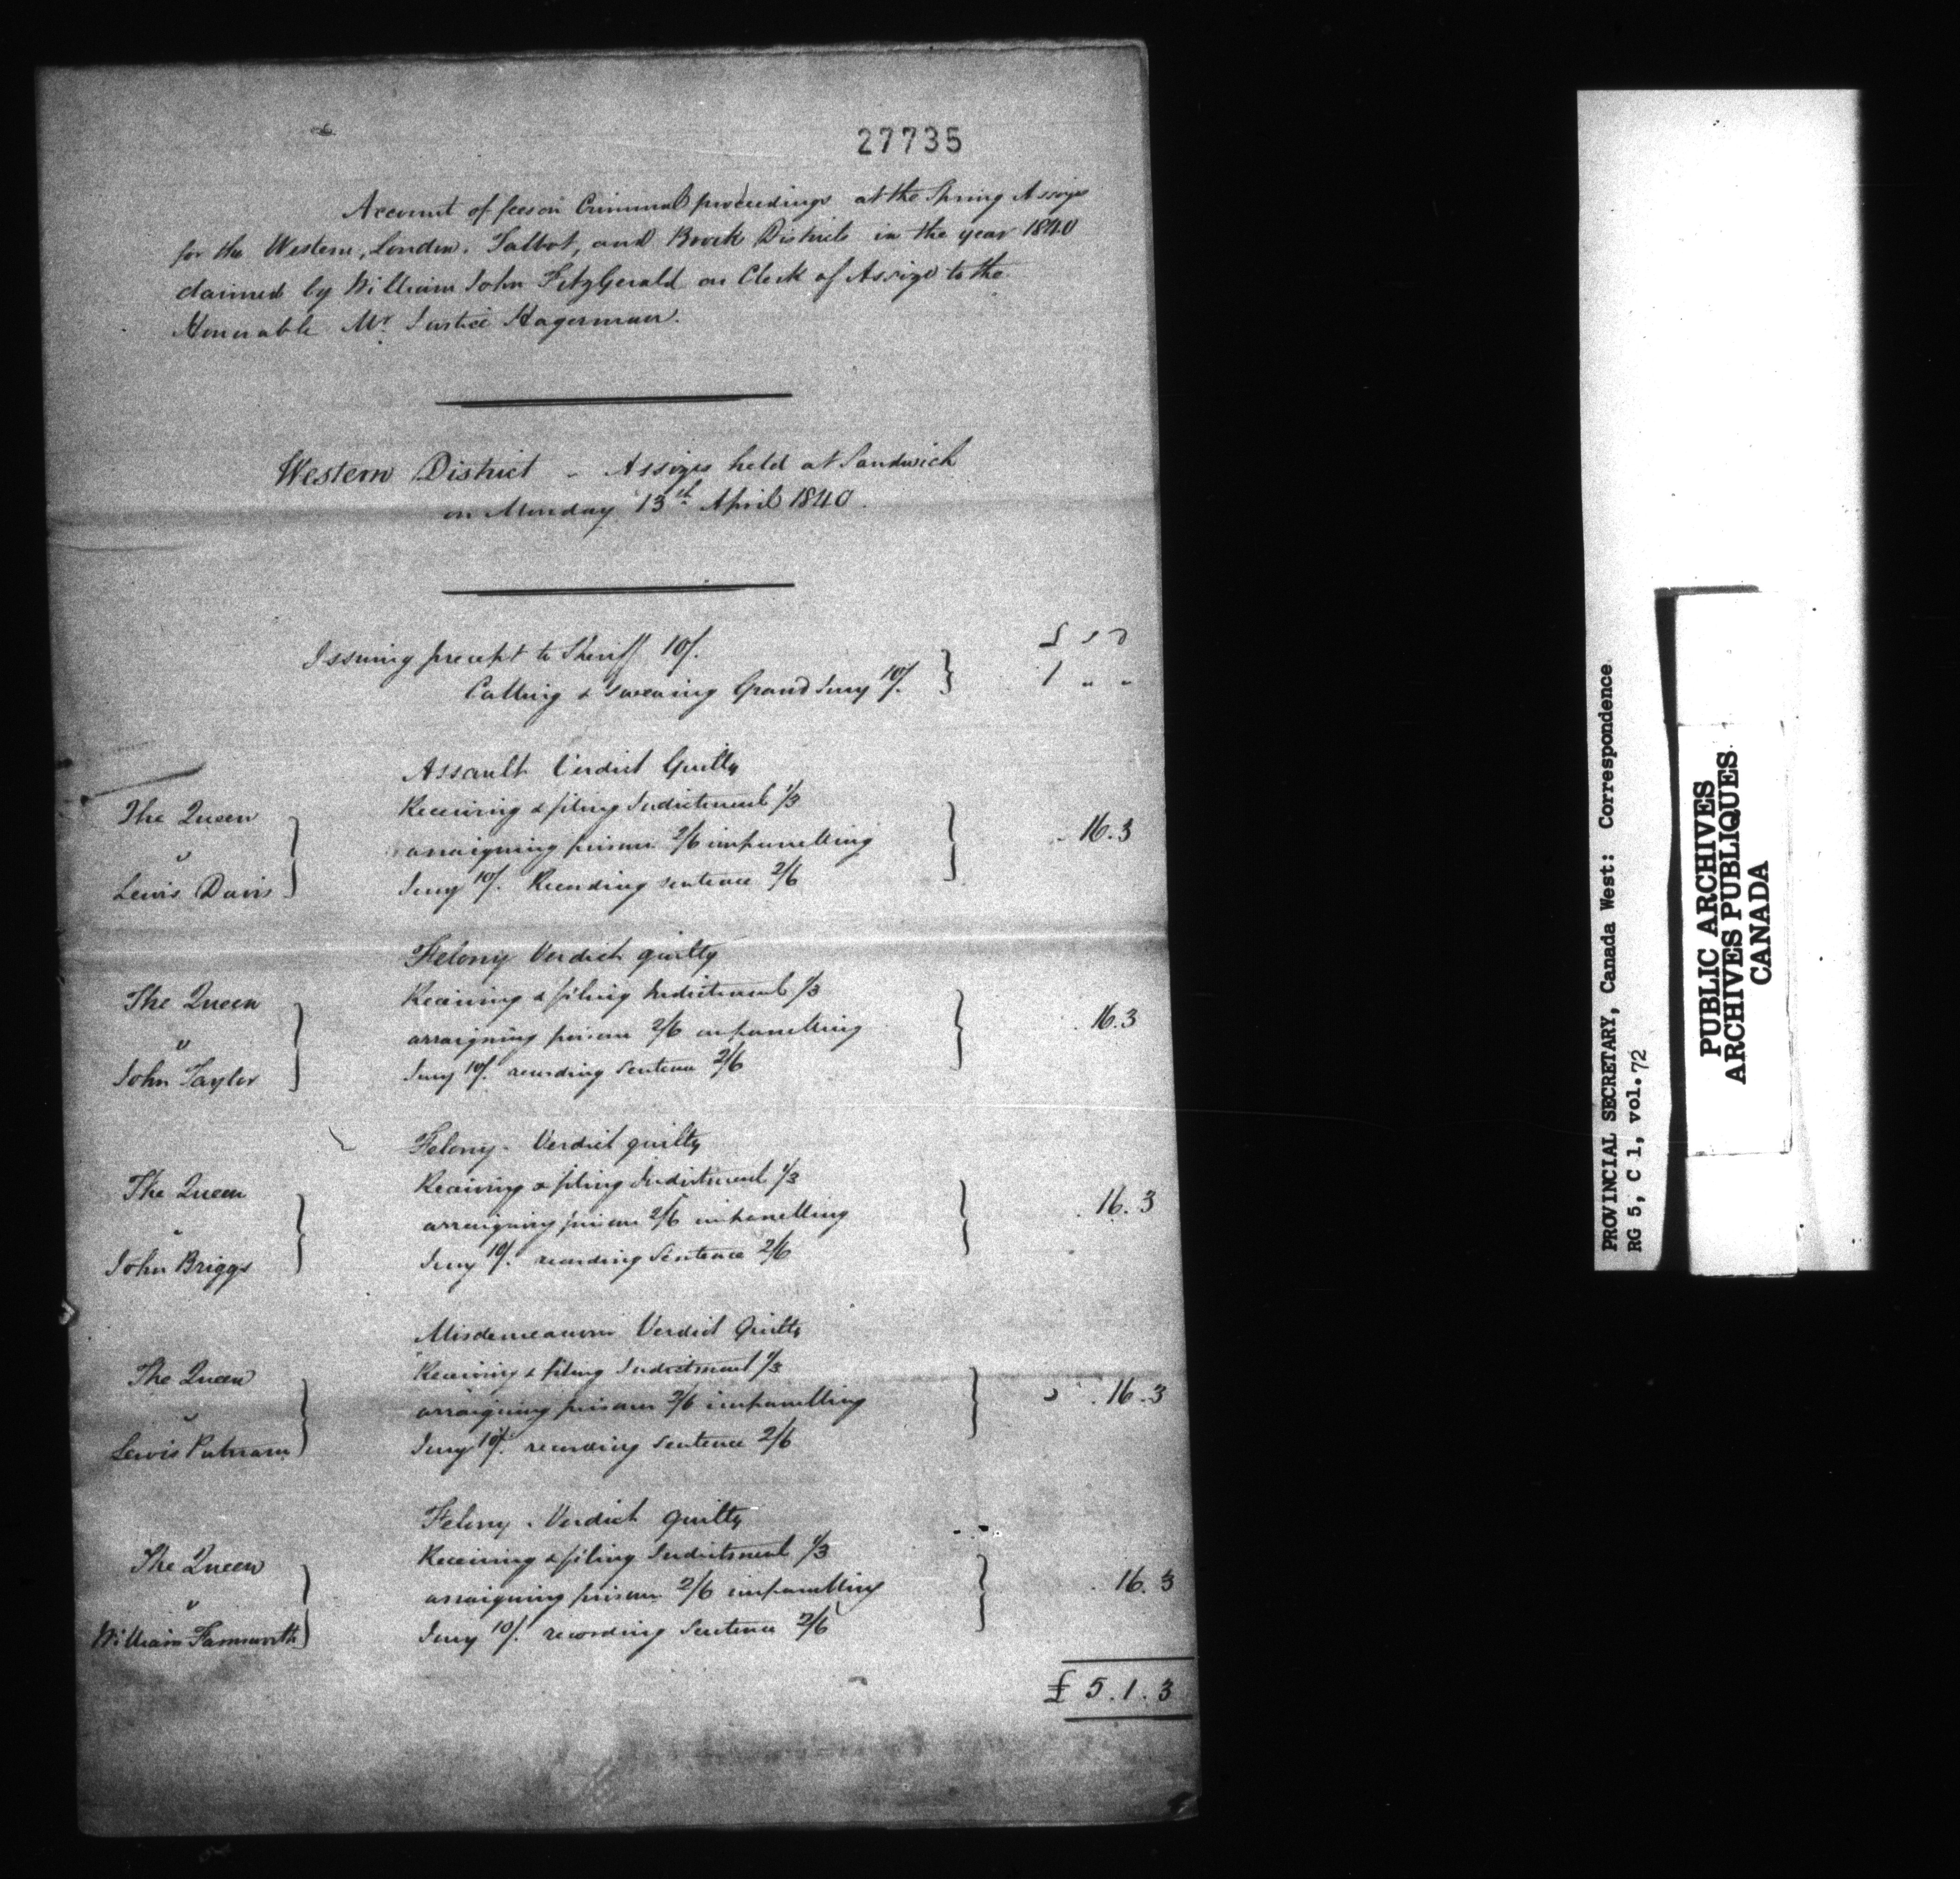 27735
Account of fees on Criminal proceedings at the Spring Assizes
for the Western, London, Talbot, and Brock Districts in the year 1840
claimed by William John FitzGerald as Clerk of Assize to the
Honorable Mr. Justice Hagerman.
Western District - Assizes held at Sandwich
on Monday 13th April 1840.
£ s d
Issuing precept to Sheriff 10/.
Calling & swearing Grand Jury 10/. } 1 " "
Assault Verdict Guilty
The Queen Receiving & filing Indictment 1/3
v arraigning prisoner 2/6 impanelling . 16.3
Lewis Davis Jury 10/. Recording sentence 2/6
Felony Verdict guilty
The Queen Receiving & filing Indictment 1/3
v arraigning prisoner 2/6 impanelling . 16.3
John Taylor Jury 10/. recording Sentence 2/6
Felony - Verdict guilty
The Queen Receiving & filing Indictment 1/3
" arraigning prisoner 2/6 impanelling . 16.3
John Briggs Jury 10/. recording Sentence 2/6
Misdemeanour Verdict Guilty
The Queen Receiving & filing Indictment 1/3
v arraigning prisoner 2/6 impanelling . 16.3
Lewis Putnam Jury 10/. recording Sentence 2/6
Felony - Verdict guilty
The Queen Receiving & filing Indictment 1/3
v arraigning prisoner 2/6 impanelling . 16.3
William Farnsworth Jury 10/. recording Sentence 2/6
£ 5.1.3
PROVINCIAL SECRETARY, Canada West: Correspondence
RG 5, C 1, vol. 72
PUBLIC ARCHIVES
ARCHIVES PUBLIQUES
CANADA